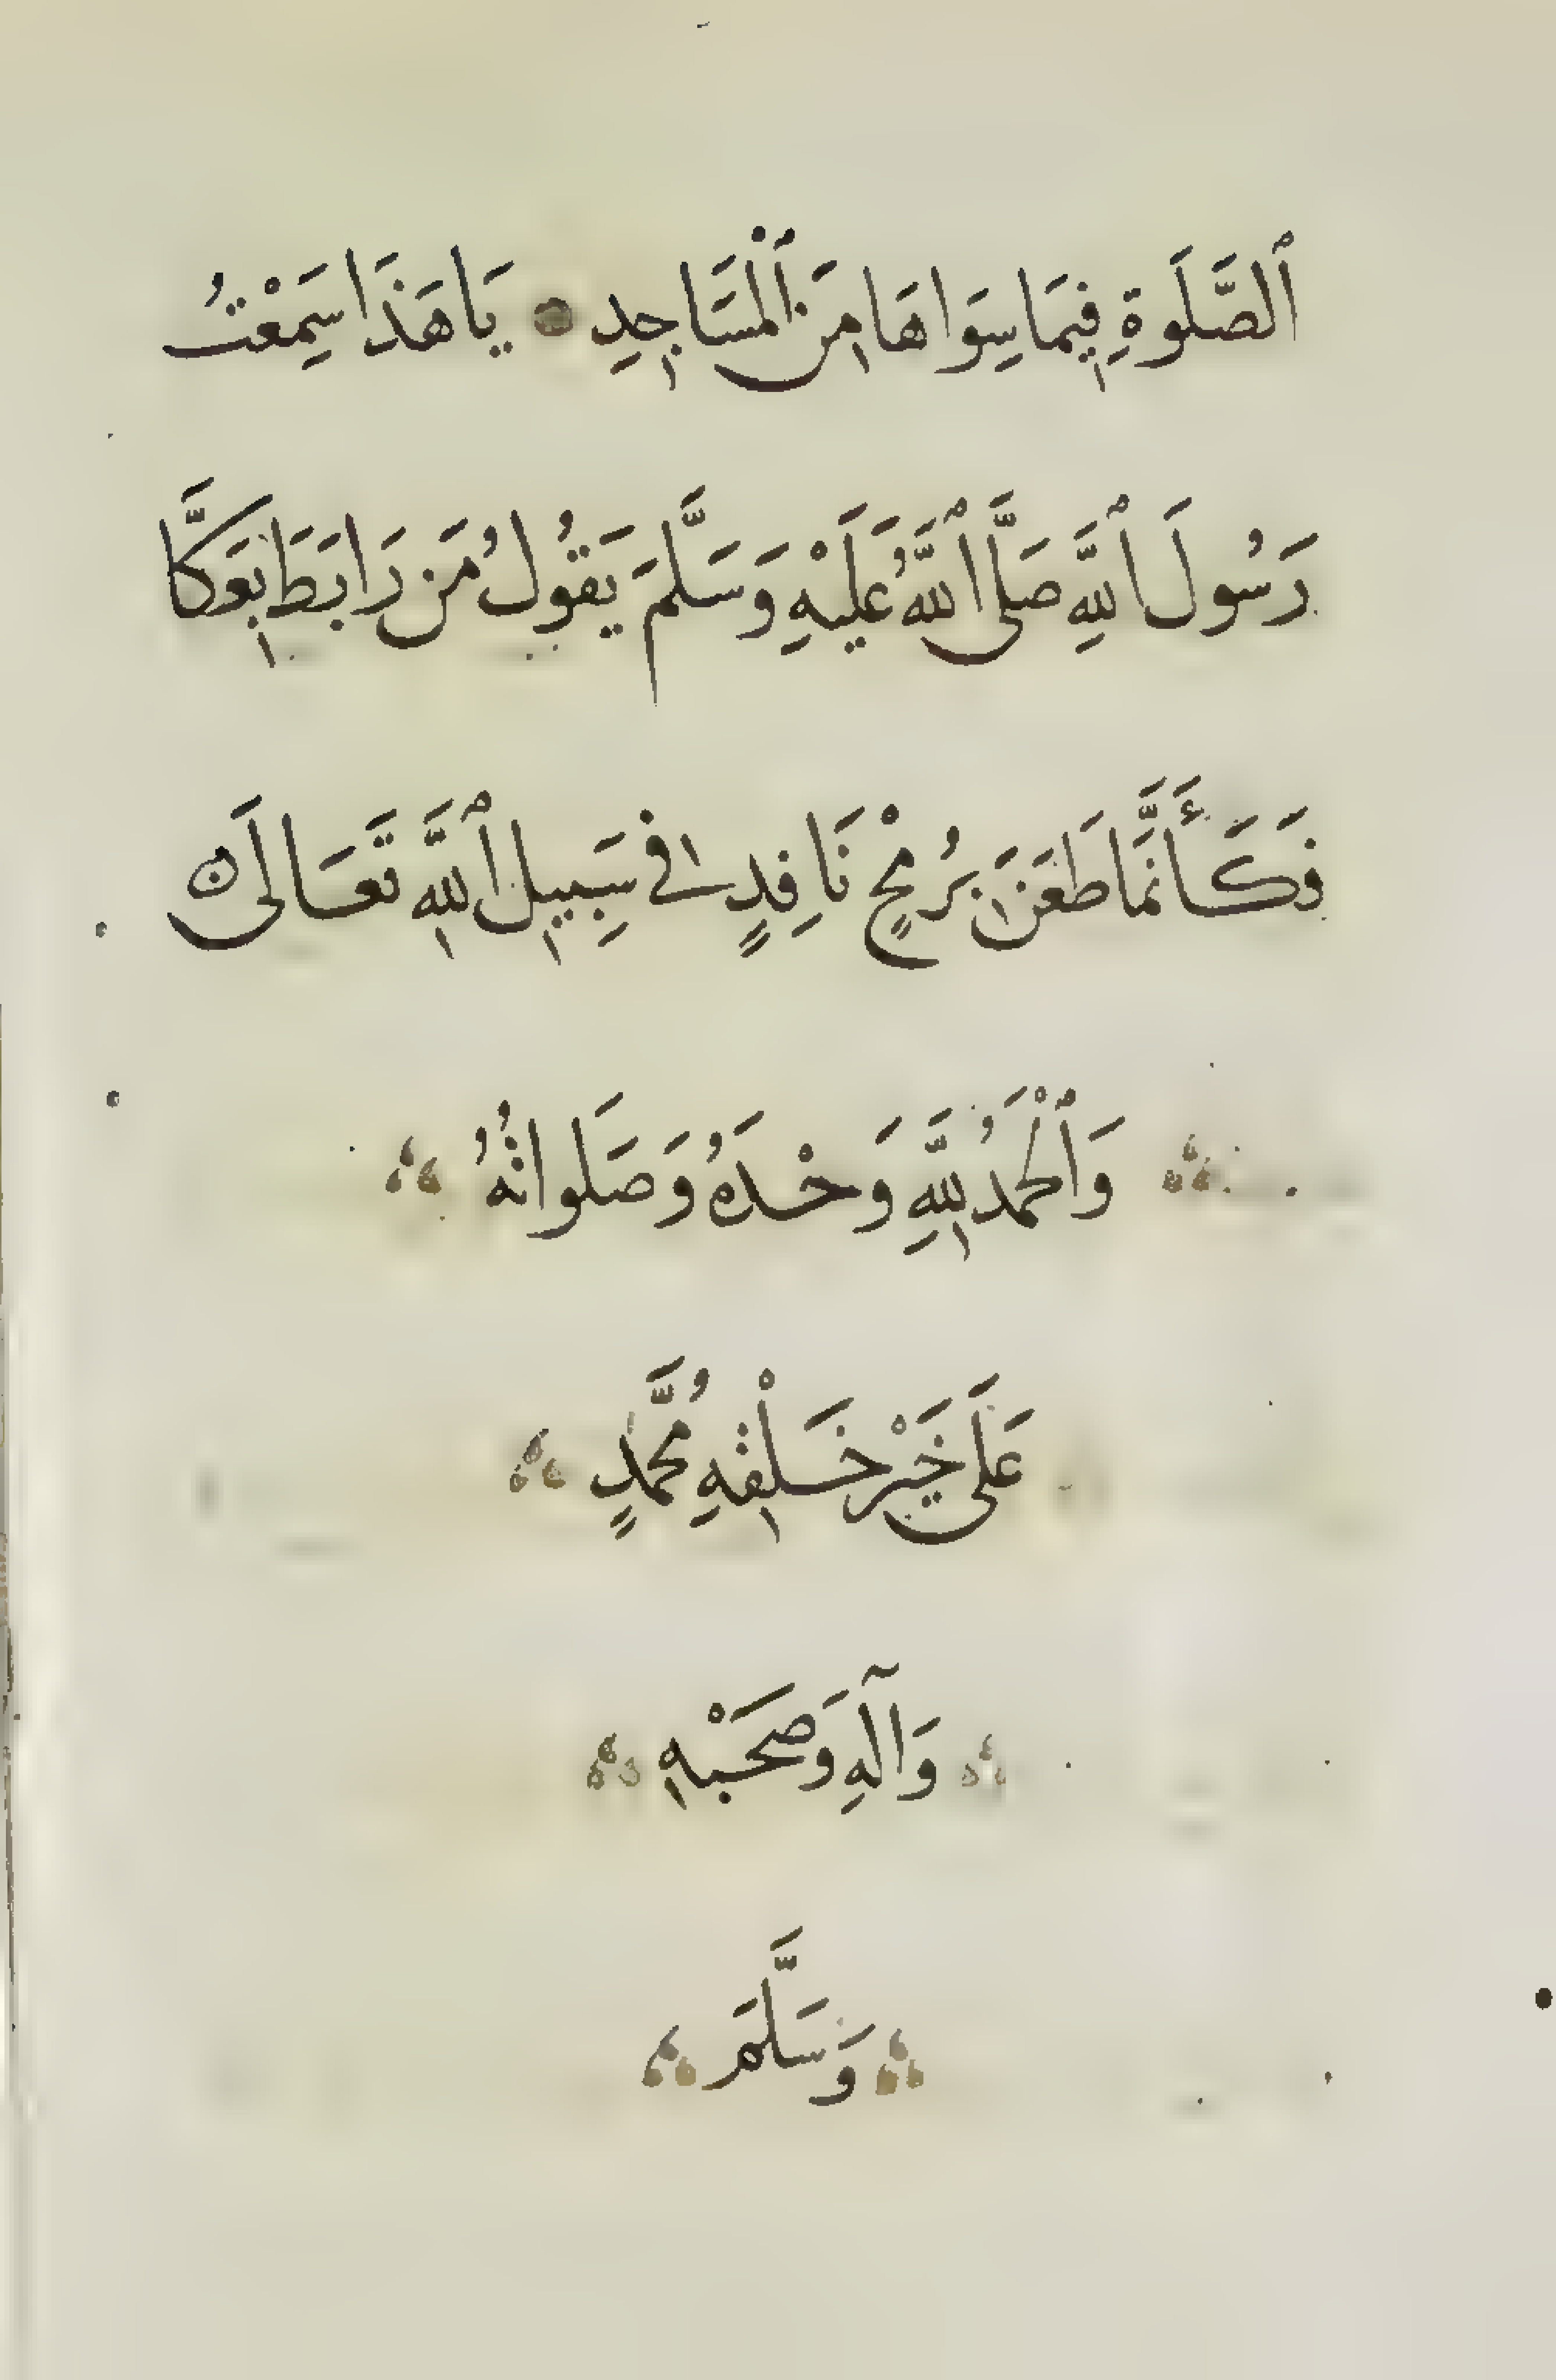 ٱلصَّلَوةِ فِيمَا سِوَاهَا مِنَ ٱلْمَسَاجِدِ يَا هَذَا سَمِعْتُ
رَسُولَ ٱللَّهِ صَلَّى ٱللَّهُ عَلَيْهِ وَسَلَّمَ يَقُولُ مَن رَابَطَ بِعَكَّا
فَكَأَنَّمَا طَعَنَ بِرُمْحٍ نَافِدٍ فِى سَبِيلِ ٱللَّهِ تَعَالَى
وَٱلْحَمْدُ لِلَّهِ وَحْدَهُ وَصَلَوَاتُهُ
عَلَى خَيْرِ خَلْقِهِ مُحَمَّدٍ
وَآلِهِ وَصَحْبِهِ
وَسَلَّمَ